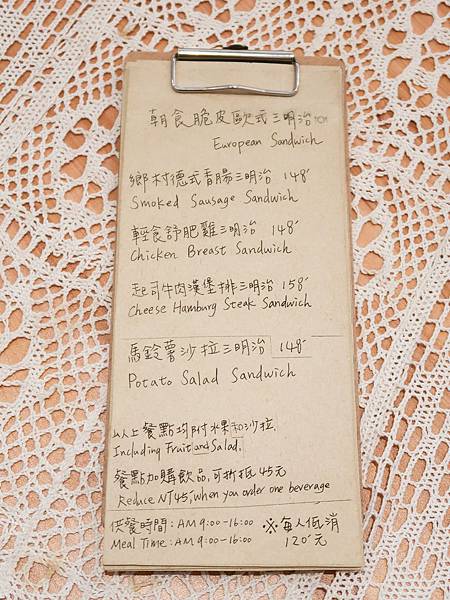 朝食脆皮歐式三明治
European Sandwich
鄉村德式香腸三明治 148
Smoked Sausage Sandwich
輕食舒肥雞三明治 148
Chicken Breast Sandwich
起司牛肉漢堡排三明治 158
Cheese Hamburg Steak Sandwich
馬鈴薯沙拉三明治 148
Potato Salad Sandwich
以上餐點均附水果和沙拉
Including Fruit and Salad.
餐點加購飲品,可折抵45元
Reduce NT45, when you order one beverage
供餐時間:AM 9:00-16:00 ※每人低消
Meal Time:AM 9:00-16:00 120元